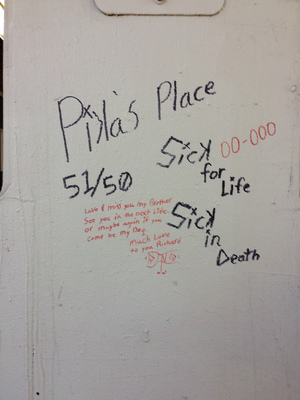 Pika's Place
51/50
Sick 00-000
for
Life
Sick
in
Death
Love & miss you my Brother
See you in the next Life
or maybe again if you
come be my Dog
Much Love
to you Richard